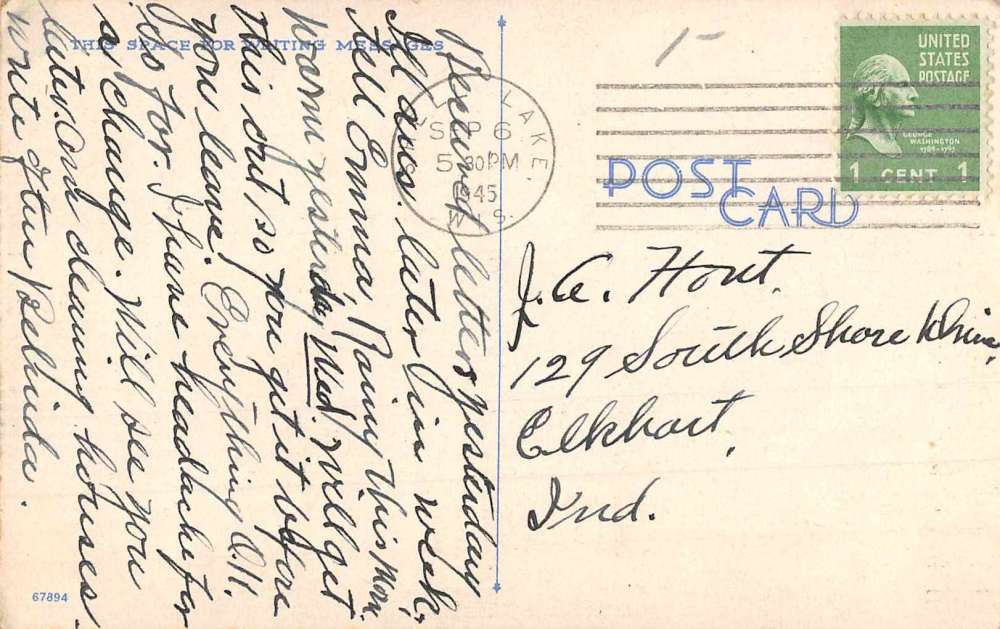 THIS SPACE FOR WRITING MESSAGES
Received letters yesterday
All news. later in week,
tell Emma, Rainy this Morn.
warm yesterday Wed. will get
this out so you get it before
you leave. Everything O.K.
for. I have headache for
a change. Will see you
later. Ora cleaning houses.
write often Belinda.
67894
LAKE
SEP 6
5 30 PM
1945
WIS.
UNITED
STATES
POSTAGE
GEORGE
WASHINGTON
1789-1797
1 CENT 1
POST
CARD
J.A. Hont.
129 South Shore Drive,
Elkhart,
Ind.